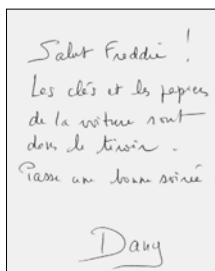 Salut Freddie !
Les clés et les papiers
de la voiture sont
dans le tiroir .
Passe une bonne soirée
Dany